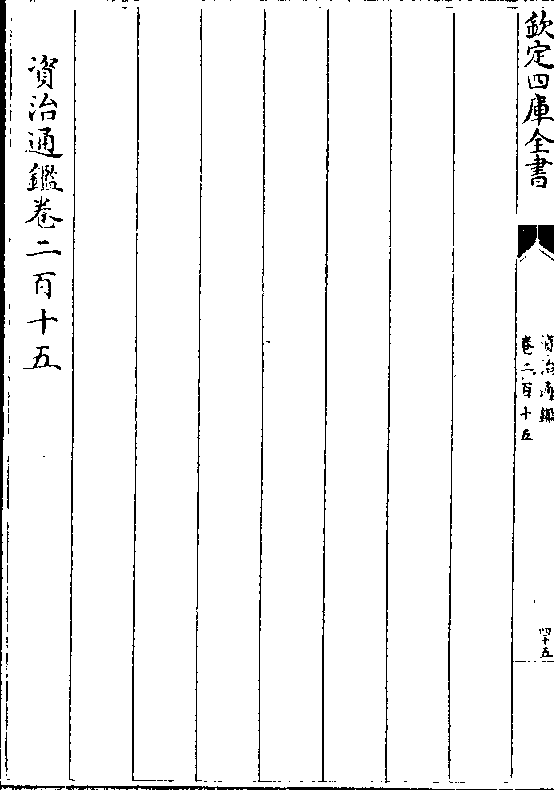 欽定四庫全書
資治通鑑
卷二百十五
四十五
資治通鑑卷二百十五